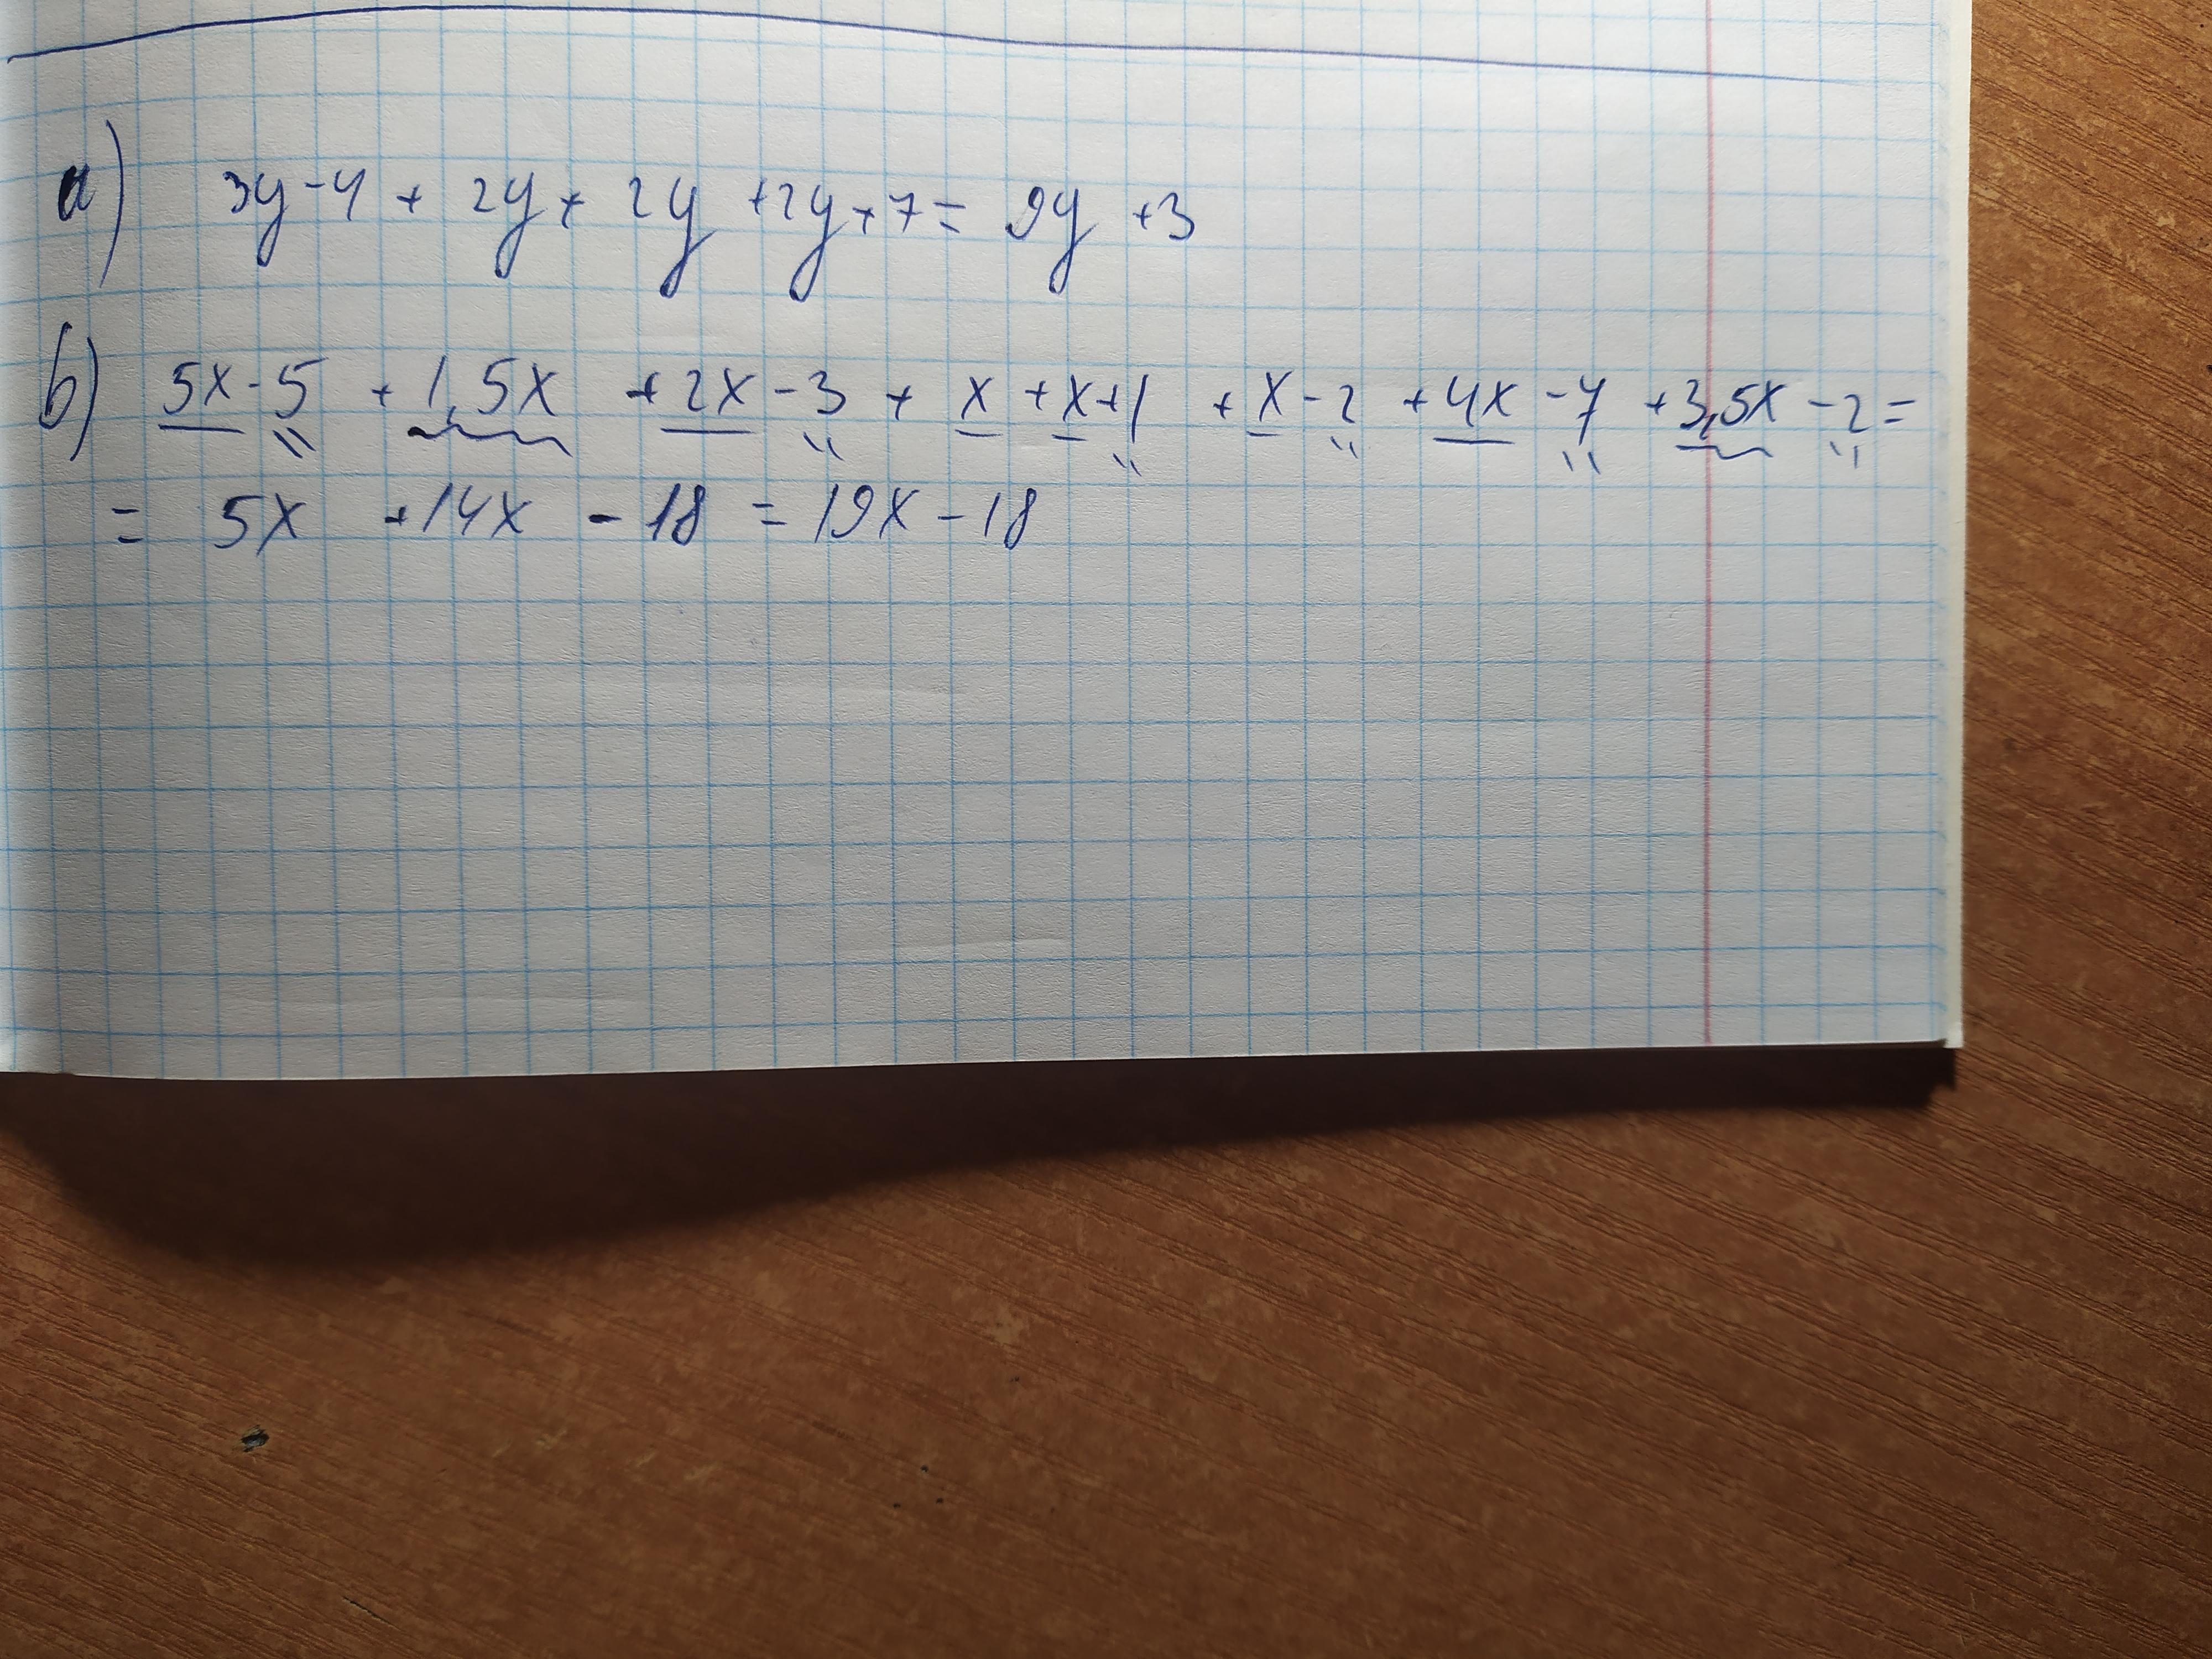 a) 3y-4 + 2y + 2y +2y+7= 9y +3
b) 5x-5 +1,5x +2x-3 + x +x+1 +x-2 +4x -7 +3,5x -2=
= 5x +14x - 18 = 19x-18